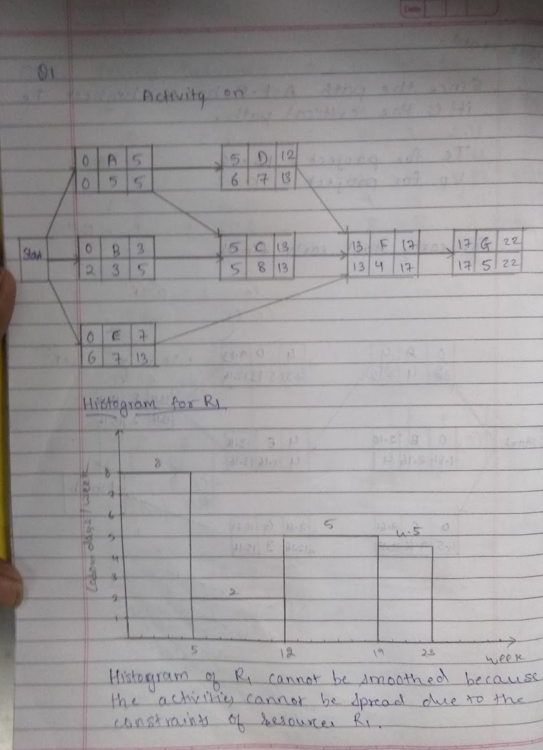 Q1
Activity on
0 A 5
0 5 5
5 D 12
6 7 13
Start
0 B 3
2 3 5
5 C 13
5 8 13
13 F 17
13 4 17
17 G 22
17 5 22
0 E 7
6 7 13
Histogram for R1
Labour days / week
8
7
6
5
4
3
2
1
8
2
5
4.5
5
12
19
23
week
Histogram of R1 cannot be smoothed because
the activities cannot be spread due to the
constraints of resources R1.